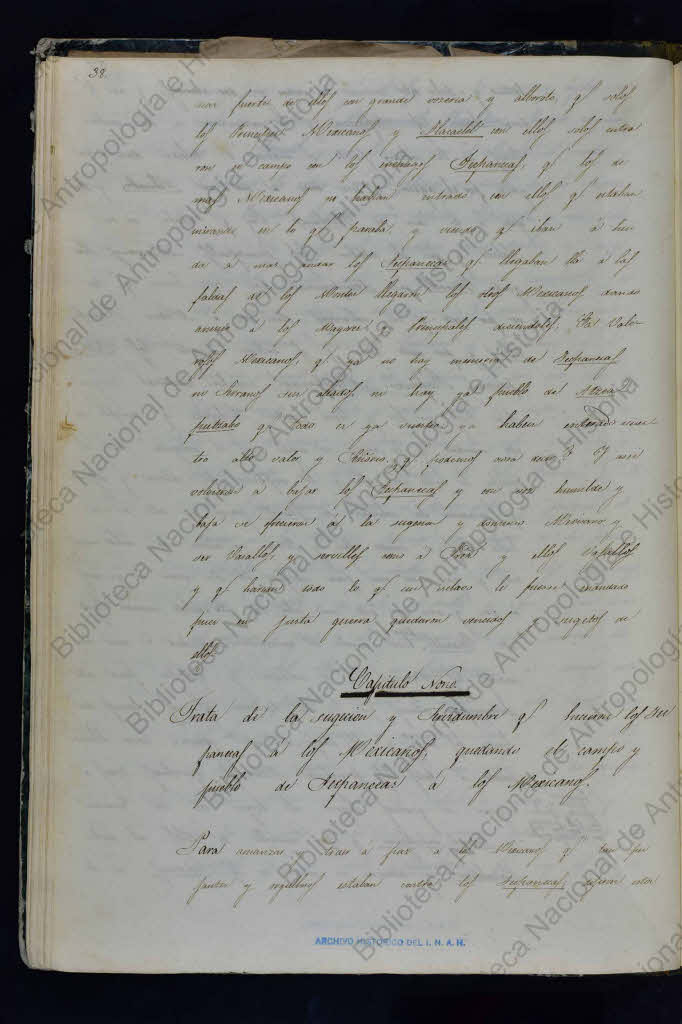 38.
mas fuerte de ellos con grande voceria y alboroto, qᵉ solos
los Principales Mexicanos y Tlacaelel con ellos solos entra
ron en campo con los enemigos Tecpanecas, qᵉ los de
mas Mexicanos no habian entrado con ellos qᵉ estaban
mirando en lo qᵉ paraba y viendo qᵉ iban á huir
da á mas andar los Tecpanecas qᵉ llegaban llá á las
faldas de los Montes llegaron los otros Mexicanos dando
á los Mayores y Principales diciendoles, Ea Valo-
rosos Mexicanos, qᵉ ya no hay memoria de Tecpanecas
no hay ya pueblo de Atzca-
putzalco qᵉ todo es ya vuestro ya haben
tro alto valor y qᵉ podemos aora Y asi
volvieron á bajar los Tecpanecas y con voz humilde y
baja se ofrecieron á la sugecion y dominio Mexicano y
ser Vasallos, y servilles como á Srês. y ellos Vasallos
y qᵉ harian todo lo qᵉ les fuese mandado
pues en justa guerra quedaron vencidos y sugetos de
ellos.
Capitulo Nono.
Trata de la sugecion y Servidumbre qᵉ hicieron los Tec
panecas á los Mexicanos, quedando el campo y
pueblo de Tecpanecas á los Mexicanos.
Para amanzar y traer á paz a los Mexicanos qᵉ tan pu
jantes y orgullosos estaban contra los Tecpanecas, estos
ARCHIVO HISTORICO DEL I. N. A. H.
Biblioteca Nacional de Antropología e Historia